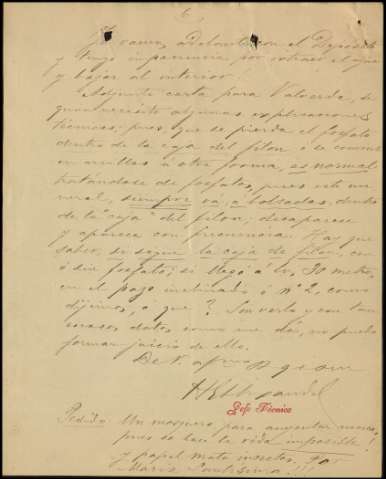 6
Ya vamos adelante con el Depósito
y tengo impaciencia por extraer el agua
y bajar al interior!
Adjunto carta para Valverde, de
quien necesito algunas explicaciones
técnicas; pues, que se pierda el fosfato
dentro de la caja del filon ó se convierta
en arcillas ú otra forma, es normal
tratándose de fosfatos, pues este mi-
neral, siempre vá á bolsadas, dentro
de la "caja" del filon; desaparece
y aparece con frecuencia. Hay que
saber, si sigue la caja de filon, con
ó sin fosfato; si llegó á los 30 metros
en el pozo inclinado ó nº 2, como
dijimos, ó que? Sin verlo y con tan
escasos datos, como me dá, no puedo
formar juicio de ello.
De V. afmo
Jefe Técnico
Pedido: Un mosquero para aumentar
pues se hace la vida imposible!
y papel mata insectos, por
María Santísima!!!